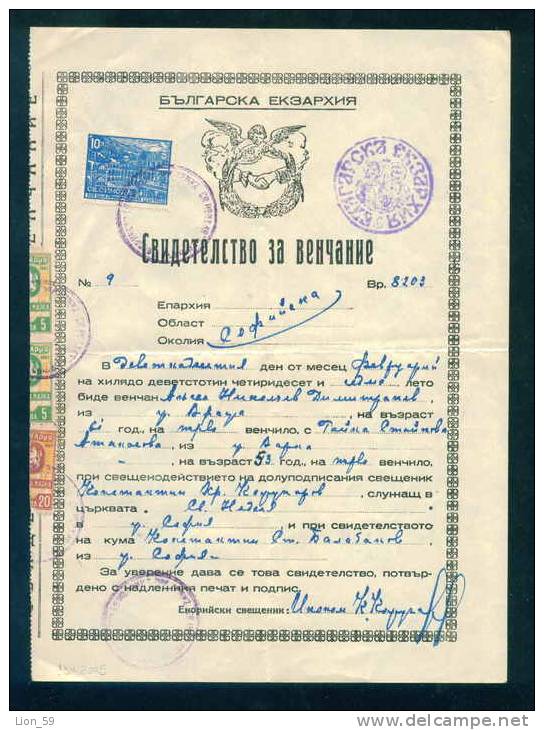 БЪЛГАРСКА ЕКЗАРХИЯ
БЪЛГАРСКА ЕКЗАРХИЯ
10
Свидетелство за венчание
№ 9 Вр. 8203
Епархия
Област Софийска
Околия
В деветнадесетия ден от месец Февруарий
на хилядо деветстотин четиридесет и лето
биде венчан Николаев Димитраков,
из гр. Враца, на възраст
61 год., на първо венчило, с Стайкова
Атанасова, из гр. Варна
-, на възраст 53 год., на първо венчило,
при свещенодействието на долуподписания свещеник
Константин Кр. , служащ в
църквата „Св. Неделя“
в гр. София, и при свидетелството
на кума Константин Ст. Балабанов,
из гр. София.
За уверение дава се това свидетелство, потвър-
дено с надлежния печат и подпис.
Енорийски свещеник: Иконом К.
5
5
20
Lion_59
www.delcampe.net